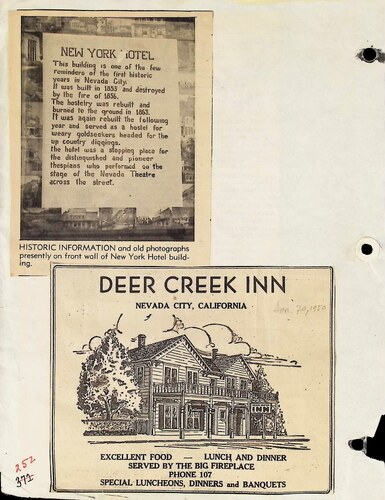 NEW YORK HOTEL
This building is one of the few
reminders of the first historic
years in Nevada City.
It was built in 1853 and destroyed
by the fire of 1856.
The hostelry was rebuilt and
burned to the ground in 1863.
It was again rebuilt the following
year and served as a hostel for
weary goldseekers headed for the
up country diggings.
The hotel was a stopping place for
the distinguished and pioneer
thespians who performed on the
stage of the Nevada Theatre
across the street.
HISTORIC INFORMATION and old photographs
presently on front wall of New York Hotel build-
ing.
DEER CREEK INN
NEVADA CITY, CALIFORNIA
INN
EXCELLENT FOOD — LUNCH AND DINNER
SERVED BY THE BIG FIREPLACE
PHONE 107
SPECIAL LUNCHEONS, DINNERS and BANQUETS
252
371